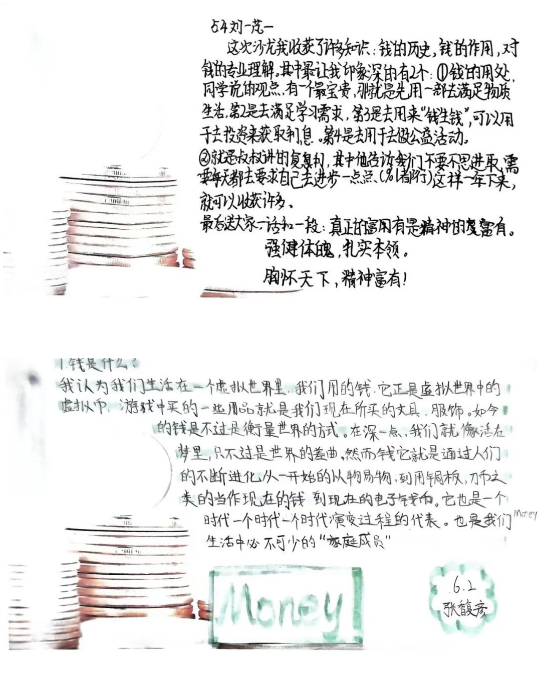 5.4 刘一茂一
这次沙龙我收获了许多知识：钱的历史，钱的作用，对
钱的专业理解。其中最让我印象深的有2个：①钱的用处，
同学说的观点，有一个最宝贵，那就是先用一部去满足物质
生活，第2是去满足学习需求，第3是去用来“钱生钱”，可以用
于去投资来获取利息。第4是去用于去做公益活动。
②就是叔叔讲的复复利，其中他告诉我们不要不思进取，需
要每天都去要求自己去进步一点点、(1%都行)这样一年下来，
就可以收获许多。
最后送大家一话和一段：真正的富用有是精神的富有。
强健体魄，扎实本领。
胸怀天下，精神富有！
1.钱是什么？
我认为我们生活在一个虚拟世界里，我们用的钱，它正是虚拟世界中的
虚拟币，游戏中买的一些用品就是我们现在所买的文具、服饰。如今
的钱是不过是衡量世界的方式。在深一点，我们就像活在
梦里，只不过是世界的歪曲。然而钱它就是通过人们
的不断进化，从一开始的以物易物，到用铜板，刀币之
类的当作现在的钱 到现在的电子钱币。它也是一个
时代一个时代一个时代演变过程的代表。也是我们 Money
生活中必不可少的“家庭成员”
Money
6.2
张馥彦